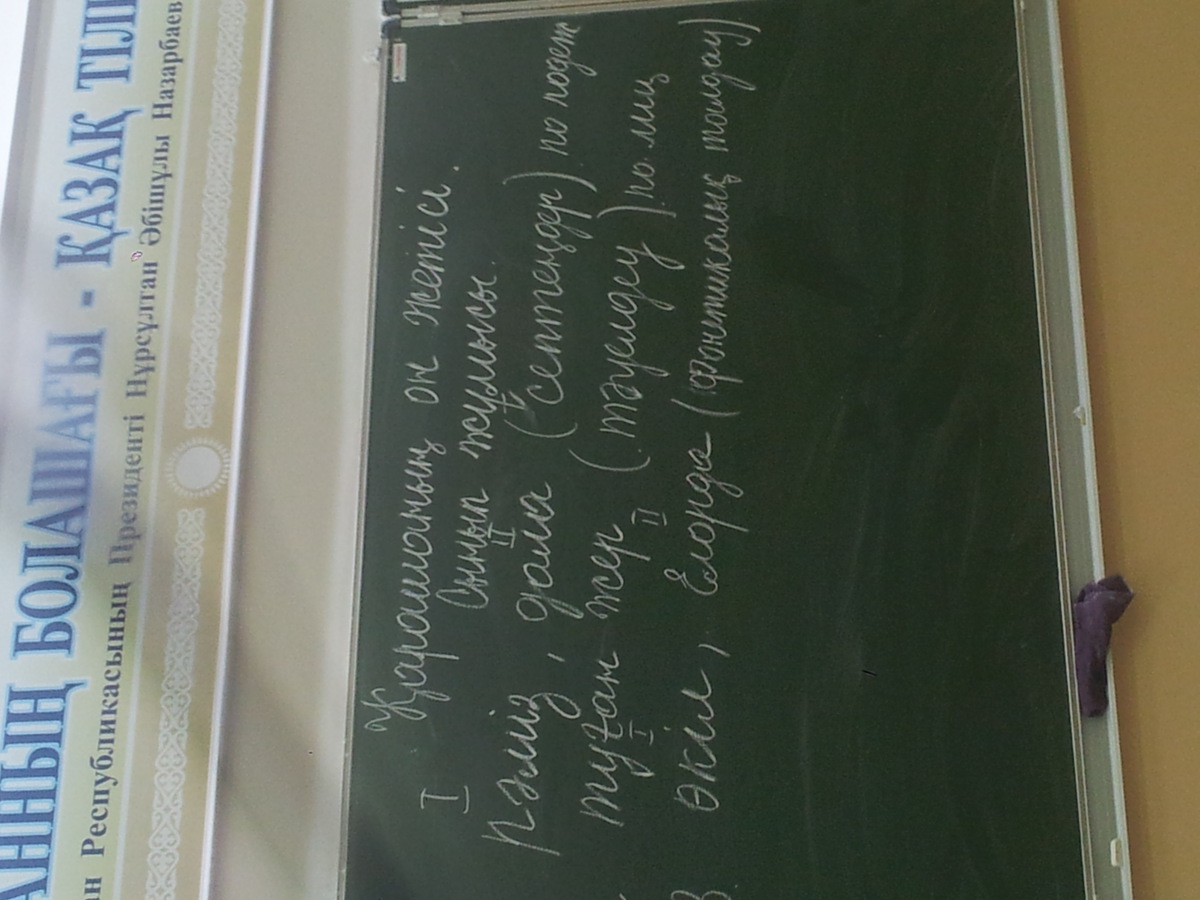 АННЫҢ БОЛАШАҒЫ - ҚАЗАҚ ТІЛІ
ан Республикасының Президенті Нұрсұлтан Әбішұлы Назарбаев
Қарашаның он жетісі.
I Сынып жұмысы.
Рәміз, II дала I (септеңдер) по подет
туған жер (тәуелдеу) по лиц
I өкіл, II Елорда (фонетикалық талдау)